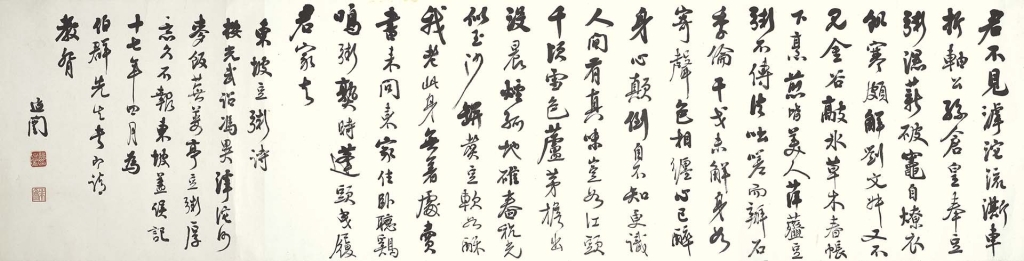 君不見滹沱流澌車
折軸公孫倉皇奉豆
粥濕薪破竈自燎衣
飢寒頓解劉文叔又不
見金谷敲冰草木春帳
下烹煎皆美人萍虀豆
粥不傳法咄嗟而辦石
季倫干戈未解身如
寄聲色相纏心已醉
身心顛倒自不知更識
人間有真味豈如江頭
千頃雪色蘆茅檐出
沒晨煙孤地碓舂秔光
似玉沙缾煮豆軟如酥
我老此身無著處賣
書來問東家住臥聽雞
鳴粥熟時蓬頭曳履
君家去
東坡豆粥詩
按光武詔馮異滹沱河
麥飯蕪蔞亭豆粥厚
意久不報東坡蓋誤記
十七年四月為
伯群先生書即請
教督
延闓